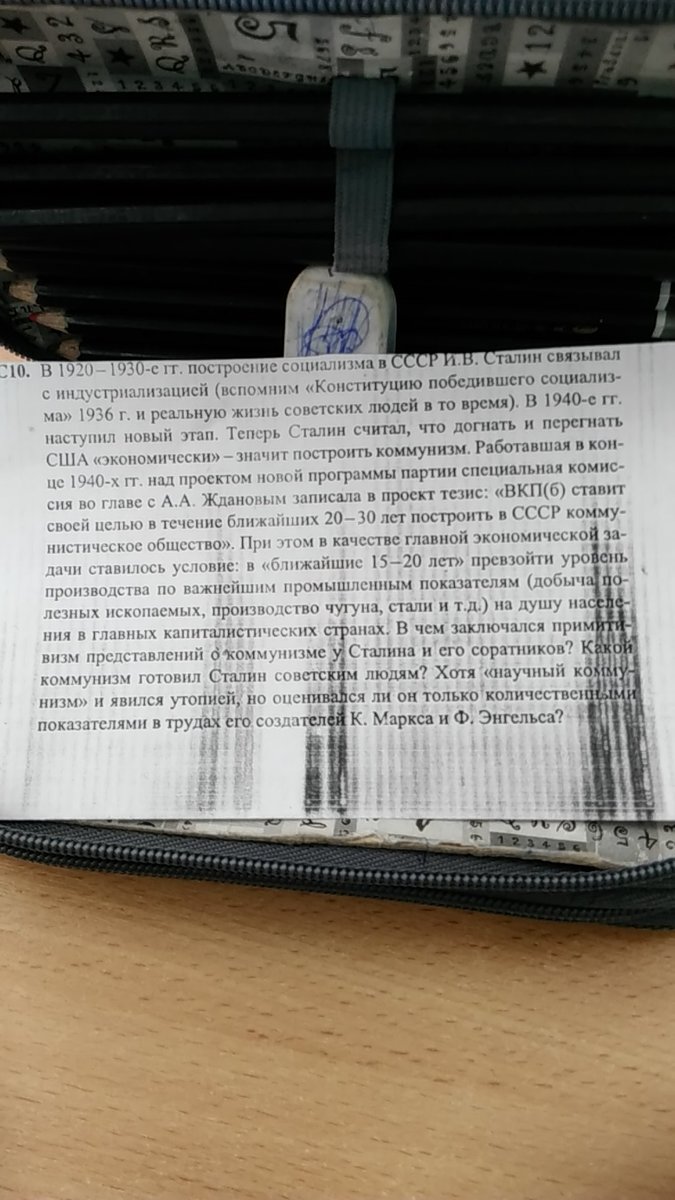 5
432
★12
С10. В 1920–1930-е гг. построение социализма в СССР И.В. Сталин связывал
с индустриализацией (вспомним «Конституцию победившего социализ-
ма» 1936 г. и реальную жизнь советских людей в то время). В 1940-е гг.
наступил новый этап. Теперь Сталин считал, что догнать и перегнать
США «экономически» – значит построить коммунизм. Работавшая в кон-
це 1940-х гг. над проектом новой программы партии специальная комис-
сия во главе с А.А. Ждановым записала в проект тезис: «ВКП(б) ставит
своей целью в течение ближайших 20–30 лет построить в СССР комму-
нистическое общество». При этом в качестве главной экономической за-
дачи ставилось условие: в «ближайшие 15–20 лет» превзойти уровень
производства по важнейшим промышленным показателям (добыча по-
лезных ископаемых, производство чугуна, стали и т.д.) на душу населе-
ния в главных капиталистических странах. В чем заключался примити-
визм представлений о коммунизме у Сталина и его соратников? Какой
коммунизм готовил Сталин советским людям? Хотя «научный комму-
низм» и явился утопией, но оценивался ли он только количественными
показателями в трудах его создателей К. Маркса и Ф. Энгельса?
1 2 3 4 5 6